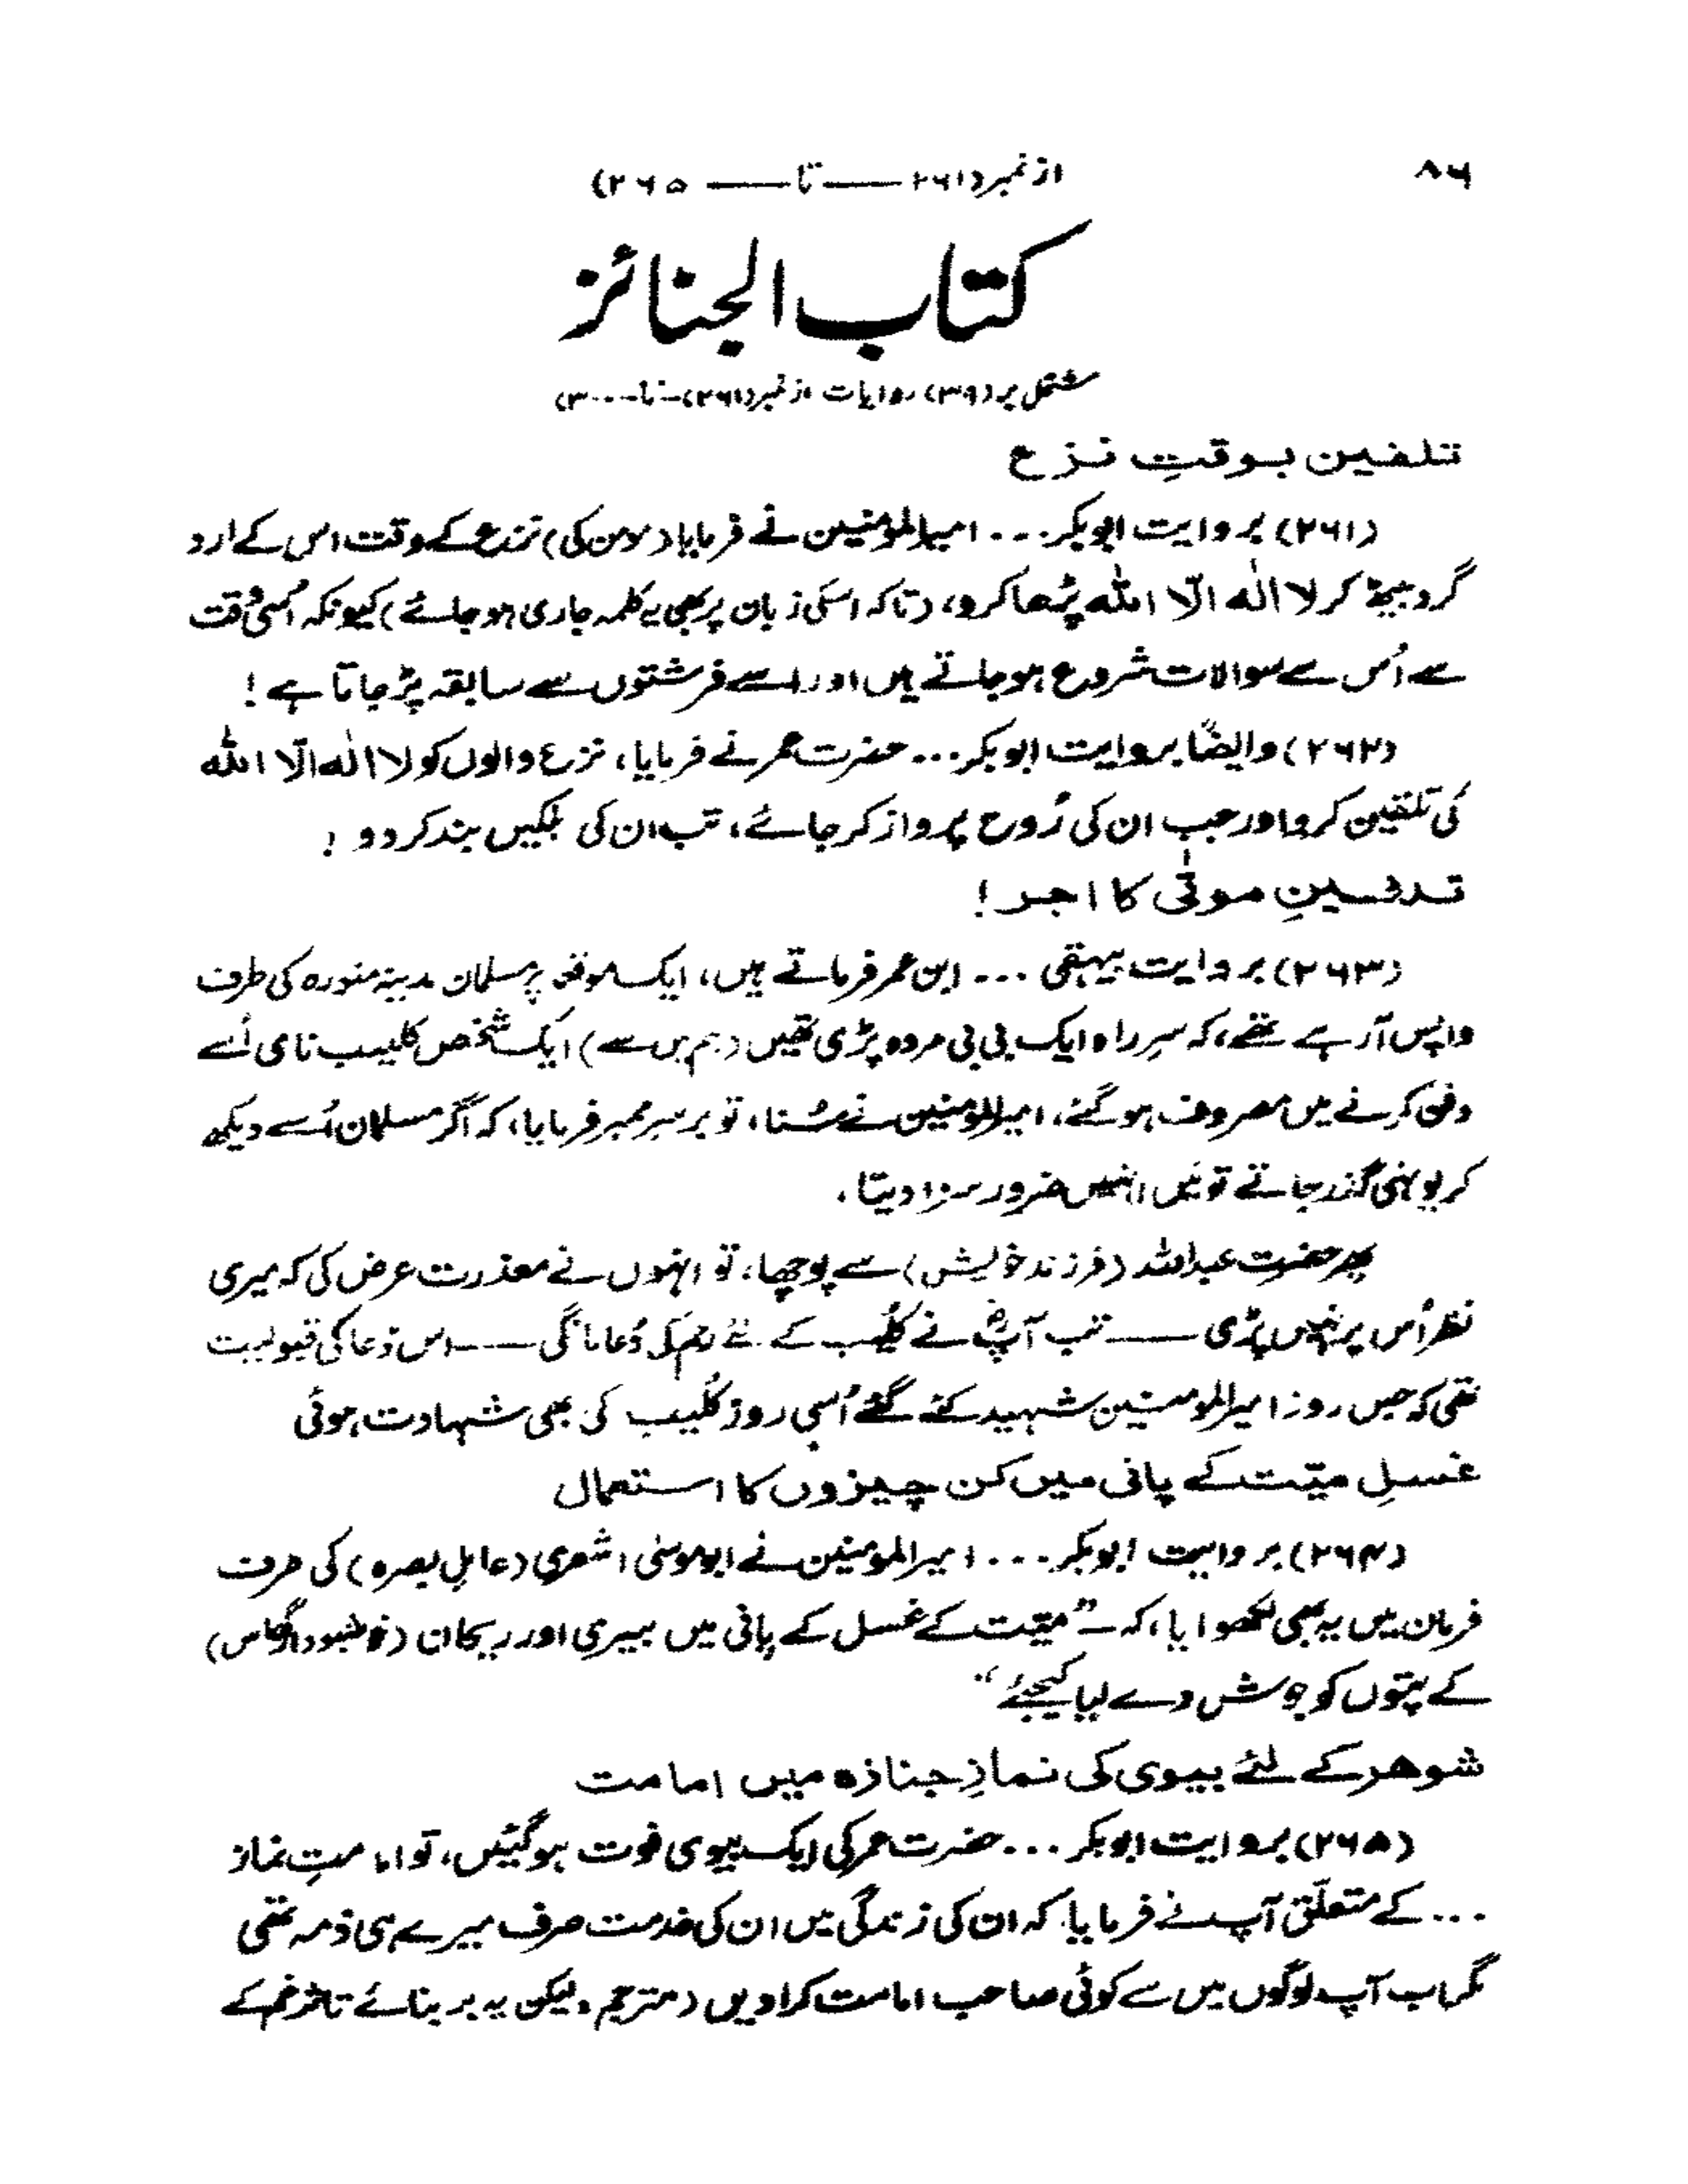 ۸۶
از نمبر (۲۶۱ ——— تا ——— ۲۶۵)
کتاب الجنائز
مشتمل بر (۳۹) روایات از نمبر (۲۶۱) - تا - ۳۰۰)
تلقین بوقتِ نزع
(۲۶۱) بروایت ابوبکر... امیرالمؤمنین نے فرمایا (مومن کی) نزع کے وقت اس کے ارد
گرد بیٹھ کر لا الٰہ الّا اللہ پڑھا کرو، (تاکہ اسکی زبان پر بھی یہ کلمہ جاری ہو جائے) کیونکہ اُسی وقت
سے اُس سے سوالات شروع ہو جاتے ہیں اور اسے فرشتوں سے سابقہ پڑ جاتا ہے!
(۲۶۲) وایضًا بروایت ابوبکر... حضرت عمر نے فرمایا، نزع والوں کو لا الٰہ الّا اللہ
کی تلقین کرو اور جب ان کی رُوح پرواز کر جائے، تب ان کی پلکیں بند کر دو!
تدفینِ موتٰی کا اجر!
(۲۶۳) بروایت بیہقی... ابن عمر فرماتے ہیں، ایک موقعہ پر مسلمان مدینہ منورہ کی طرف
واپس آرہے تھے، کہ سرِ راہ ایک بی بی مردہ پڑی تھیں (ہم میں سے) ایک شخص کلیب نامی اُسے
دفن کرنے میں مصروف ہو گئے، امیرالمومنین نے سُنا، تو بر سرِ ممبر فرمایا، کہ اگر مسلمان اُسے دیکھ
کر یونہی گذر جاتے تو میں انہیں ضرور سزا دیتا۔
پھر حضرت عبداللہ (فرزند خویش) سے پوچھا، تو انہوں نے معذرت عرض کی کہ میری
نظر اُس پر نہیں پڑی ——— تب آپؓ نے کُلیب کے لئے رحم کی دُعا مانگی ——— اس دُعا کی قبولیت
تھی کہ جس روز امیرالمومنین شہید کئے گئے اُسی روز کُلیب کی بھی شہادت ہوئی
غسلِ میّت کے پانی میں کن چیزوں کا استعمال
(۲۶۴) بروایت ابوبکر... امیرالمومنین نے ابوموسٰی اشعری (عاملِ بصرہ) کی طرف
فرمان میں یہ بھی لکھوایا، کہ — ”میّت کے غسل کے پانی میں بیری اور ریحان (خوشبودار گھاس)
کے پتوں کو جوش دے لیا کیجئے“
شوھر کے لئے بیوی کی نمازِ جنازہ میں امامت
(۲۶۵) بروایت ابوبکر... حضرت عمر کی ایک بیوی فوت ہو گئیں، تو امامتِ نماز
... کے متعلّق آپ نے فرمایا کہ ان کی زندگی میں ان کی خدمت صرف میرے ہی ذمہ تھی
مگر اب آپ لوگوں میں سے کوئی صاحب امامت کرا دیں (مترجم، لیکن یہ بر بنائے تاثرِ غم کے